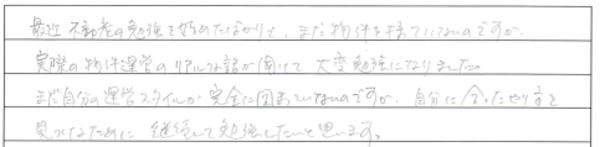 最近不動産の勉強を始めたばかりで、まだ物件を持っていないのですが、
実際の物件運営のリアルな話が聞けて大変勉強になりました。
まだ自分の運営スタイルが完全に固まっていないのですが、自分に合ったやり方を
見つけるために継続して勉強したいと思います。